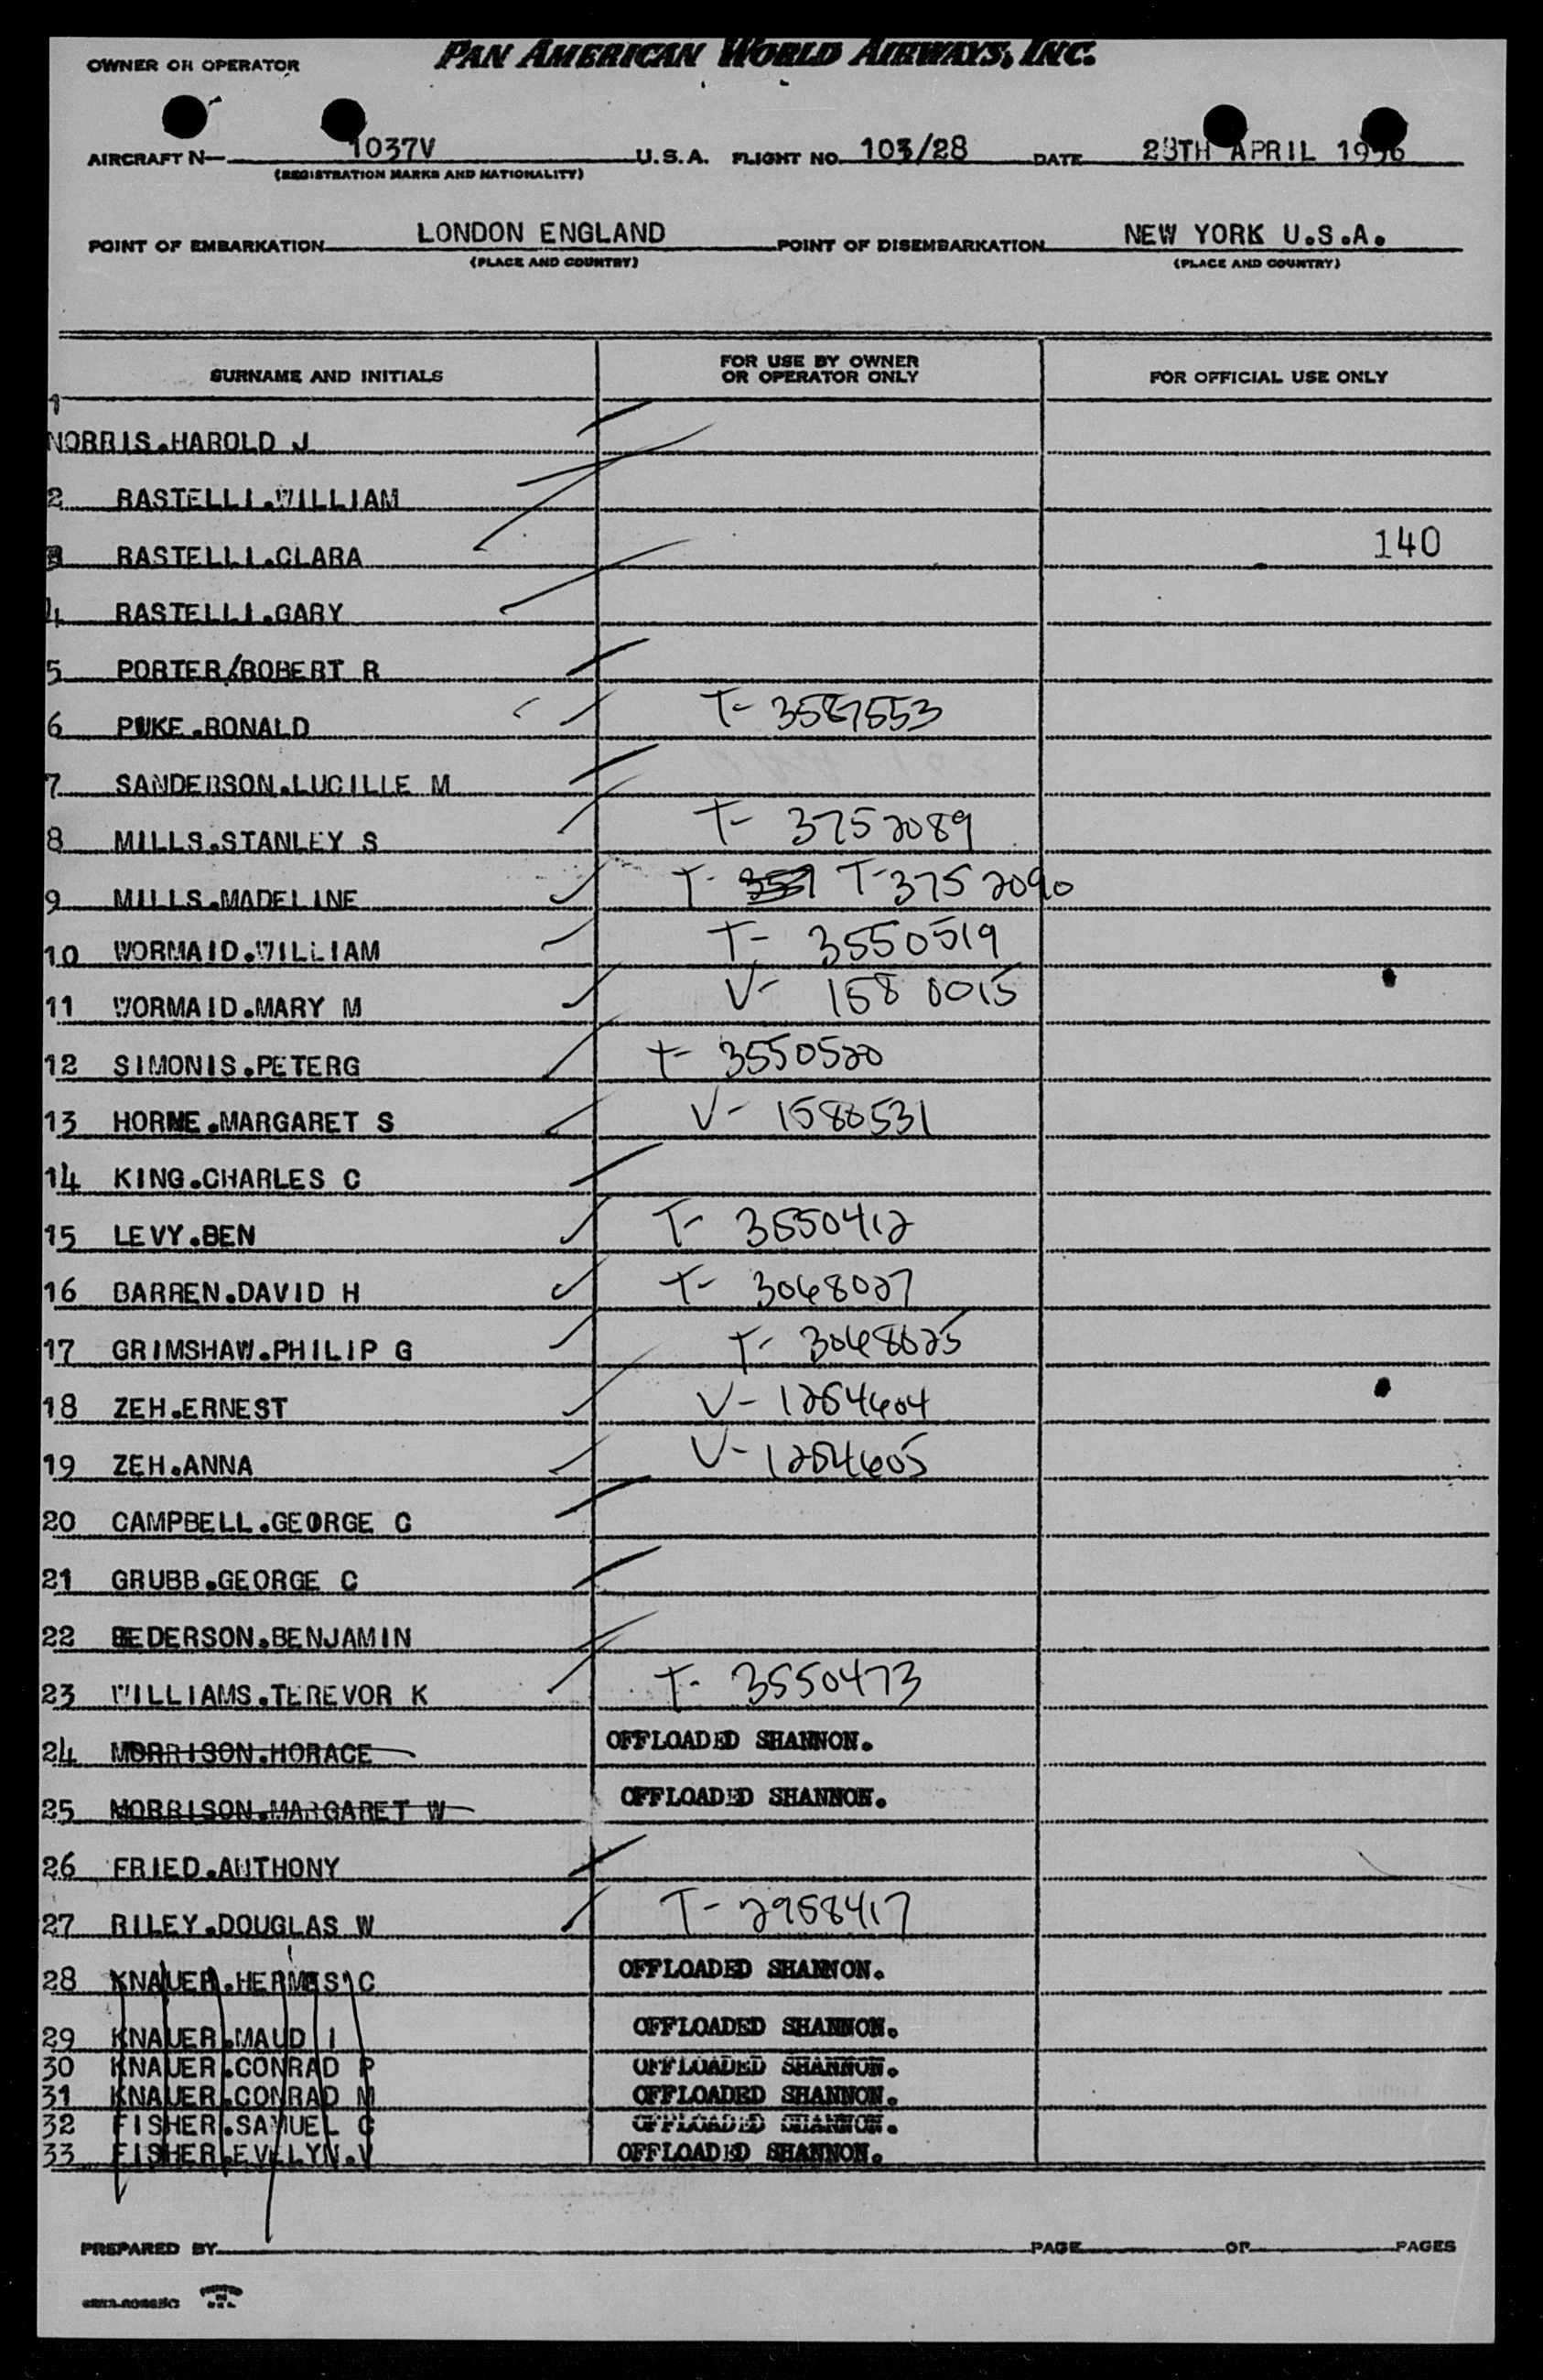 PAN AMERICAN WORLD AIRWAYS, INC.
OWNER OR OPERATOR
AIRCRAFT N- 1037V U.S.A. FLIGHT NO. 103/28 DATE 28TH APRIL 1956
(REGISTRATION MARKS AND NATIONALITY)
POINT OF EMBARKATION LONDON ENGLAND POINT OF DISEMBARKATION NEW YORK U.S.A.
(PLACE AND COUNTRY) (PLACE AND COUNTRY)
SURNAME AND INITIALS FOR USE BY OWNER OR OPERATOR ONLY FOR OFFICIAL USE ONLY
1
NORRIS.HAROLD J
2 RASTELLI.WILLIAM
3 RASTELLI.CLARA 140
4 RASTELLI.GARY
5 PORTER/ROBERT R
6 PUKE.RONALD T- 3587553
7 SANDERSON.LUCILLE M
8 MILLS.STANLEY S T- 3752089
9 MILLS.MADELINE T- 359 T-3752090
10 WORMAID.WILLIAM T- 3550519
11 WORMAID.MARY M V- 1580015
12 SIMONIS.PETERG T- 3550520
13 HORNE.MARGARET S V- 1588531
14 KING.CHARLES C
15 LEVY.BEN T- 3550412
16 BARREN.DAVID H T- 3068027
17 GRIMSHAW.PHILIP G T- 3068025
18 ZEH.ERNEST V- 1254604
19 ZEH.ANNA V- 1254605
20 CAMPBELL.GEORGE C
21 GRUBB.GEORGE C
22 BEDERSON.BENJAMIN
23 WILLIAMS.TEREVOR K T- 3550473
24 MORRISON.HORACE OFFLOADED SHANNON.
25 MORRISON.MARGARET W OFFLOADED SHANNON.
26 FRIED.ANTHONY
27 RILEY.DOUGLAS W T- 2958417
28 KNAUER.HERMES C OFFLOADED SHANNON.
29 KNAUER.MAUD I OFFLOADED SHANNON.
30 KNAUER.CONRAD P OFFLOADED SHANNON.
31 KNAUER.CONRAD M OFFLOADED SHANNON.
32 FISHER.SAMUEL G OFFLOADED SHANNON.
33 FISHER.EVELYN.V OFFLOADED SHANNON.
PREPARED BY PAGE OF PAGES
PRINTED IN U.S.A.